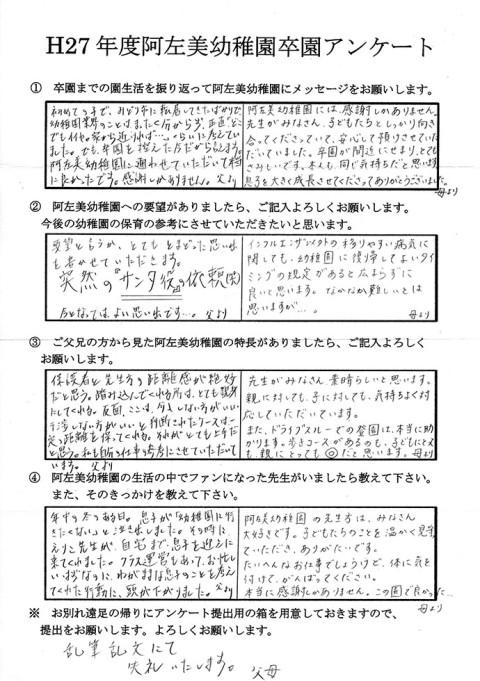 H27年度阿左美幼稚園卒園アンケート
① 卒園までの園生活を振り返って阿左美幼稚園にメッセージをお願いします。
初めての子で、みどり市に転居してきたばかりで
幼稚園業界のことはまったく分からず、正直"ど
でもイイや。家から近ければ…。"くらいに考えてい
ました。でも、卒園を控えた今だからもらえます。
阿左美幼稚園に通わせていただいて本当
に良かったです。感謝しかありません。父より
阿左美幼稚園には、感謝しかありません。
先生がみなさん、子どもたちとしっかり向き
合ってくださっていて、安心して預けさせていた
だいていました。卒園が間近にせまり、とても
さみしいです。本人も、同じ気持ちだと思います。
息子を大きく成長させてくださってありがとうございました。
母より
② 阿左美幼稚園への要望がありましたら、ご記入よろしくお願いします。
今後の幼稚園の保育の参考にさせていただきたいと思います。
要望と言うか、とても とまどった思い出
を書かせていただきます。
突然の"サンタ役の依頼"(笑)
今となっては、よい思い出です…。父より
インフルエンザ等の移りやすい病気に
関しても、幼稚園に復帰してよいタイ
ミングの規定があると広まらずに
良いと思います。なかなか難しいとは
思いますが…。
母より
③ ご父兄の方から見た阿左美幼稚園の特長がありましたら、ご記入よろしく
お願いします。
保護者と先生方の距離感が絶妙
だと思う。踏み込んでくれる所は、とても親身
にしてくれる。反面、ここは、介入しない方がいい
干渉しない方がいいと判断されたケースは一
定の距離を保ってくれる。それがとても上手だ
と思う。私も自らの仕事の参考にさせていただいて
います。父より
先生がみなさん 素晴らしいと思います。
親に対しても、子に対しても、気持ちよく対
応していただいています。
また、ドライブスルーでの登園は、本当に助
かります。歩きコースがあるのも、子どもにとても
親にとっても◎だと思います。母より
④ 阿左美幼稚園の生活の中でファンになった先生がいましたら教えて下さい。
また、そのきっかけを教えて下さい。
年中の冬のある日。息子が「幼稚園に行
きたくない」と泣き出しました。その時に
えりこ先生が、自宅まで、息子を迎えに
来てくれました。クラス運営もあって、お忙し
いはずなのに、わがままな息子のことを考え
てくれた行動に、頭が下がりました。父より
阿左美幼稚園の先生方は、みなさん
大好きです。子どもたちのことを温かく見守っ
ていただき、ありがたいです。
たいへんなお仕事でしょうけど、体に気を
付けて、がんばってください。
本当に感謝しかありません。この園で良かった…
母より
※ お別れ遠足の帰りにアンケート提出用の箱を用意しておきますので、
提出をお願いします。よろしくお願いします。
乱筆乱文にて
失礼いたします。 父母